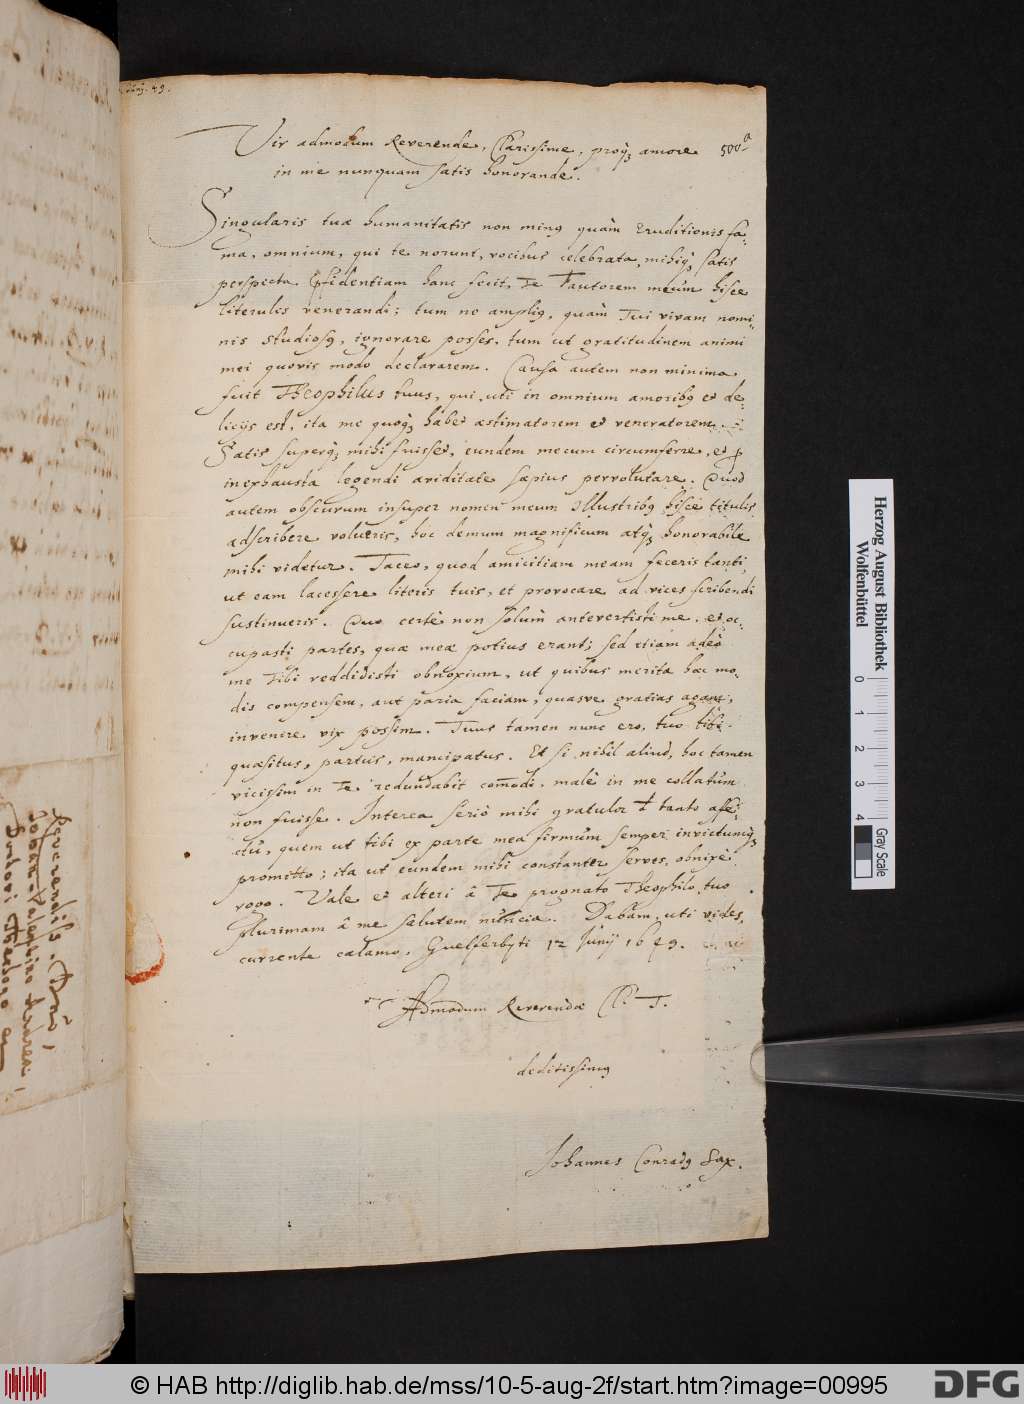 Vir admodum Reverende, Clarissime, proq₃ amore 500ᵃ
in me nunquam satis honorande.
Singularis tuæ humanitatis non minꝰ quàm Eruditionis fa-
ma, omnium, qui te norunt, vocibus celebrata, mihiq₃ satis
perspecta Cfidentiam hanc fecit, Te Fautorem meum hisce
literulis venerandi; tum ne ampliꝰ, quàm Tui vivam nomi-
nis studiosꝰ, ignorare posses, tum ut gratitudinem animi
mei quovis modo declararem. Causa autem non minima
fuit Theophilus tuus, qui uti in omnium amoribꝰ et de-
licijs est, ita me quoq₃ habet æstimatorem et veneratorem.
Satis superq₃ mihi fuisset, eundem mecum circumferre, et
inexhausta legendi aviditate sæpius pervolutare. Quod
autem obscurum insuper nomen meum illustribꝰ hisce titulis
adscribere volueris, hoc demum magnificum atq₃ honorabile
mihi videtur. Taceo, quod amicitiam meam feceris tanti,
ut eam lacessere literis tuis, et provocare ad vices scribendi
sustinueris. Quo certè non solùm antevertisti me, et oc-
cupasti partes, quæ meæ potius erant; sed etiam adeò
me Tibi reddidisti obnoxium, ut quibus merita hæc mo-
dis compensem, aut paria faciam, quasve gratias agam,
invenire vix possim. Tuus tamen nunc ero, tuo tibi
quæsitus, partus, mancipatus. Et si nihil aliud, hoc tamen
vicissim in Te redundabit comodi, malè in me collatum
non fuisse. Interea seriò mihi gratulor tanto affe-
ctu, quem ut tibi ex parte mea firmum semper invictumq₃
promitto; ita ut eundem mihi constanter serves, obnixè
rogo. Vale et alteri à Te prognato Theophilo tuo
plurimam à me salutem nuncia. Dabam, uti vides,
currente calamo, Guelferbyti 12 Junij 1649.
Admodum Reverendæ Cl. T.
deditissimꝰ
Johannes Conradꝰ Sax.
Herzog August Bibliothek
Wolfenbüttel
0 1 2 3 4
Gray Scale
© HAB http://diglib.hab.de/mss/10-5-aug-2f/start.htm?image=00995
DFG